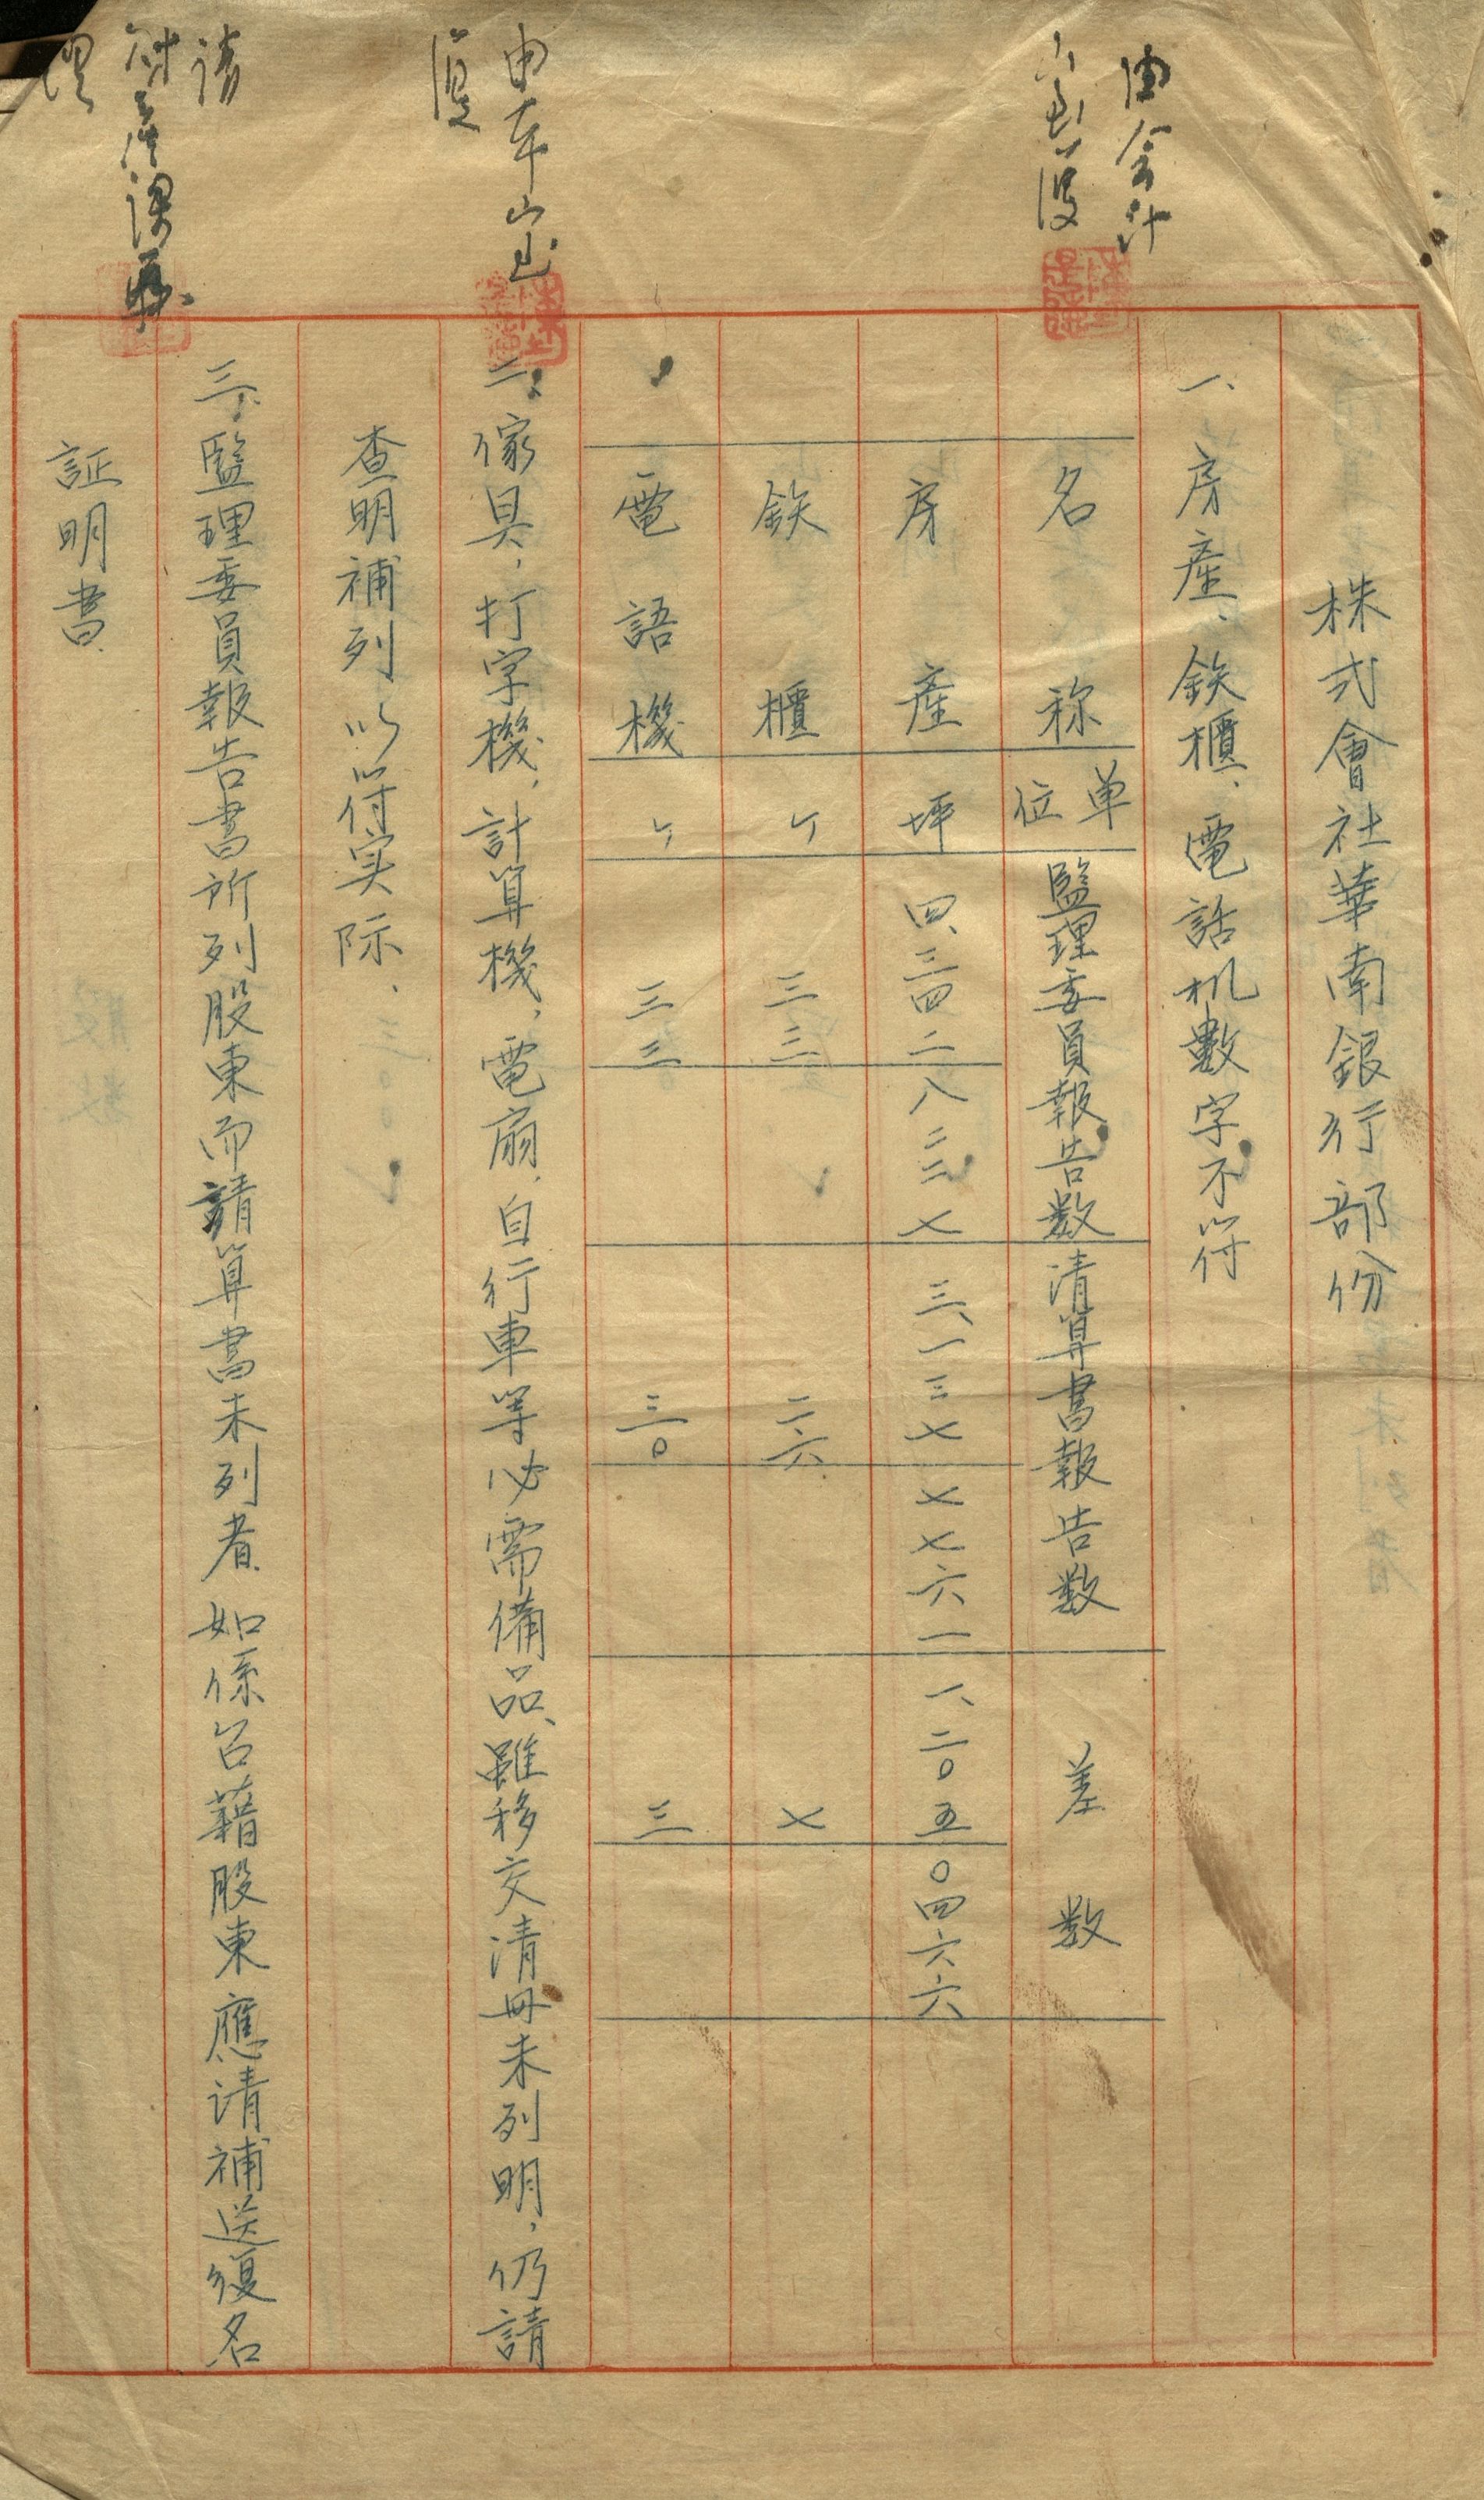 株式會社華南銀行部份
一、房產、鉄櫃、電話机數字不符
名称 单位 監理委員報告数 清算書報告数 差数
房產 坪 四、三四二八二三七 三、一三七七七六一 一、二〇五〇四六六
鉄櫃 ケ 三三 二六 七
電語機 ケ 三三 三〇 三
二、傢具，打字機，計算機，電扇，自行車等必需備品、雖移交清冊未列明，仍請
查明補列以符实际、
三、監理委員報告書所列股東而請算書未列者如係台藉股東應请補送復名
証明書
由會计
由本
请